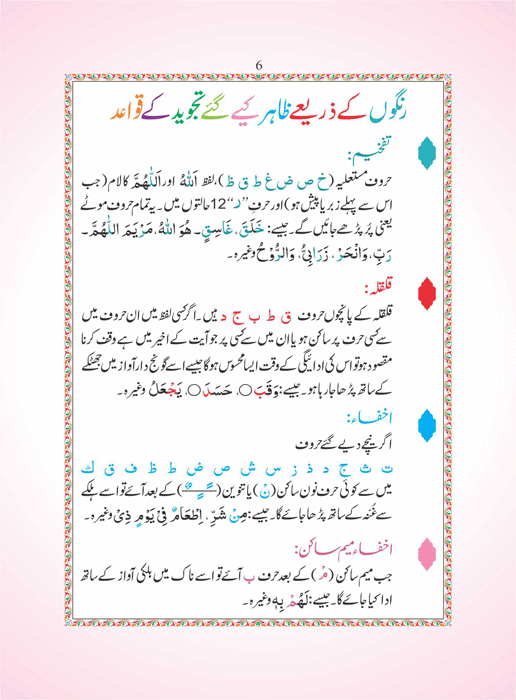 6
رنگوں کے ذریعے ظاہر کیے گئے تجوید کے قواعد
تفخیم:
حروف مستعلیہ (خ ص ض غ ط ق ظ)، لفظ اَللّٰهُ اور اَللّٰهُمَّ کا لام (جب
اس سے پہلے زبر یا پیش ہو) اور حرف ”ر“ 12 حالتوں میں۔ یہ تمام حروف موٹے
یعنی پُر پڑھے جائیں گے۔ جیسے: خَلَقَ، غَاسِقٍ۔ هُوَ اللّٰهُ، مَرْيَمَ اللّٰهُمَّ۔
رَبِّ، وَانْحَرْ، زَرَابِيُّ، وَالرُّوْحُ وغیرہ۔
قلقلہ:
قلقلہ کے پانچوں حروف ق ط ب ج د ہیں۔ اگر کسی لفظ میں ان حروف میں
سے کسی حرف پر ساکن ہو یا ان میں سے کسی پر جو آیت کے اخیر میں ہے وقف کرنا
مقصود ہو تو اس کی ادائیگی کے وقت ایسا محسوس ہوگا جیسے اسے گونج دار آواز میں جھٹکے
کے ساتھ پڑھا جا رہا ہو۔ جیسے: وَقَبَ○، حَسَدَ○، يَجْعَلُ وغیرہ۔
اخفاء:
اگر نیچے دیے گئے حروف
ت ث ج د ذ ز س ش ص ض ط ظ ف ق ك
میں سے کوئی حرف نون ساکن (نْ) یا تنوین (ـًـ ـٍـ ـٌـ) کے بعد آئے تو اسے ہلکے
سے غُنہ کے ساتھ پڑھا جائے گا۔ جیسے: مِنْ شَرِّ، اِطْعَامٌ فِيْ يَوْمٍ ذِيْ وغیرہ۔
اخفاء میم ساکن:
جب میم ساکن (مْ) کے بعد حرف ب آئے تو اسے ناک میں ہلکی آواز کے ساتھ
ادا کیا جائے گا۔ جیسے: لَهُمْ بِهٖ وغیرہ۔